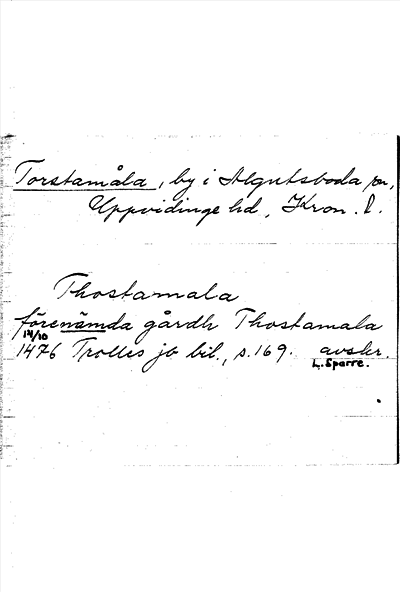 Torstamåla, by i Algutsboda sn,
Uppvidinge hd, Kron. l.
Thostamala
förenämda gårdh Thostamala
14/10
1476 Trolles jb bil., s. 169. avskr.
L. Sparre.